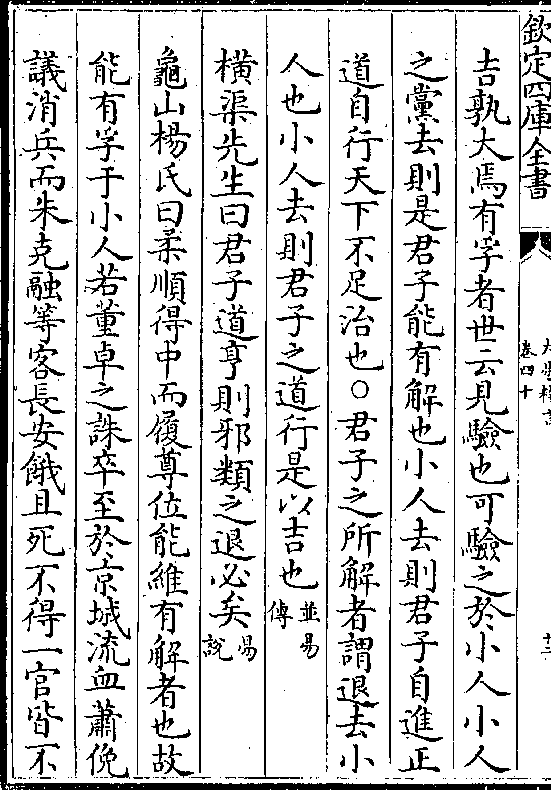 欽定四庫全書
卷四十
吉孰大焉有孚者世云見驗也可驗之於小人小人
之黨去則是君子能有解也小人去則君子自進正
道自行天下不足治也○君子之所解者謂退去小
人也小人去則君子之道行是以吉也並易傳
橫渠先生曰君子道亨則邪類之退必矣易說
龜山楊氏曰柔順得中而履尊位能維有解者也故
能有孚于小人若董卓之誅卒至於京城流血蕭俛
議消兵而朱克融等客長安餓且死不得一官皆不